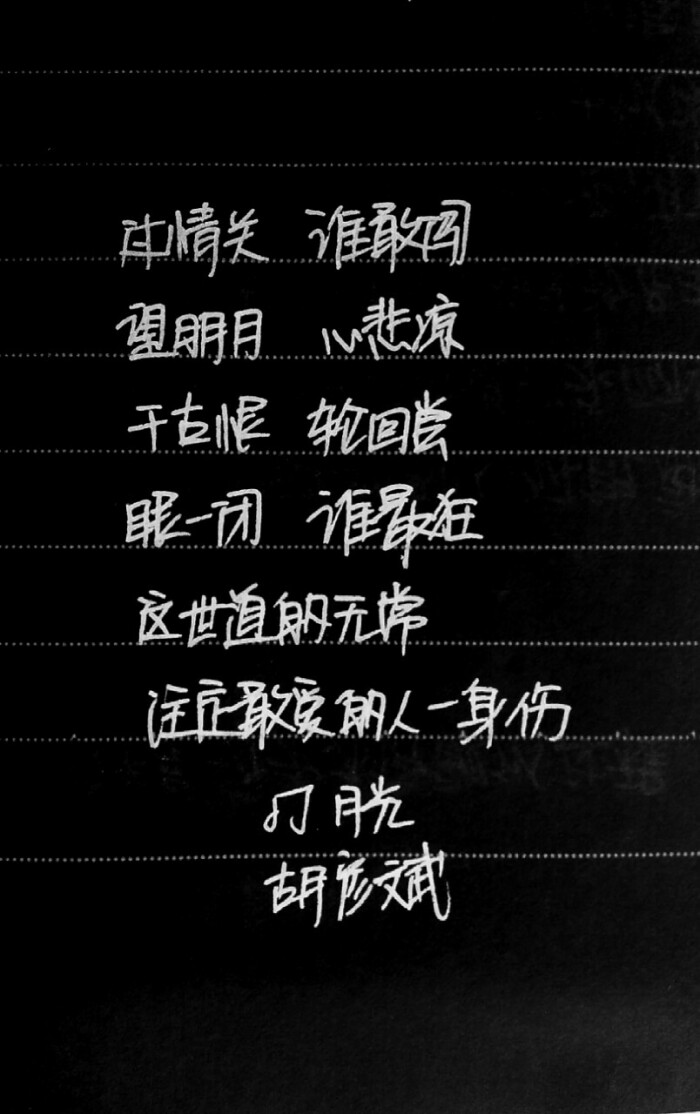 过情关 谁敢闯
望明月 心悲凉
千古恨 轮回尝
眼一闭 谁最狂
这世道的无常
注定敢爱的人一身伤
♫ 月光
胡彦斌